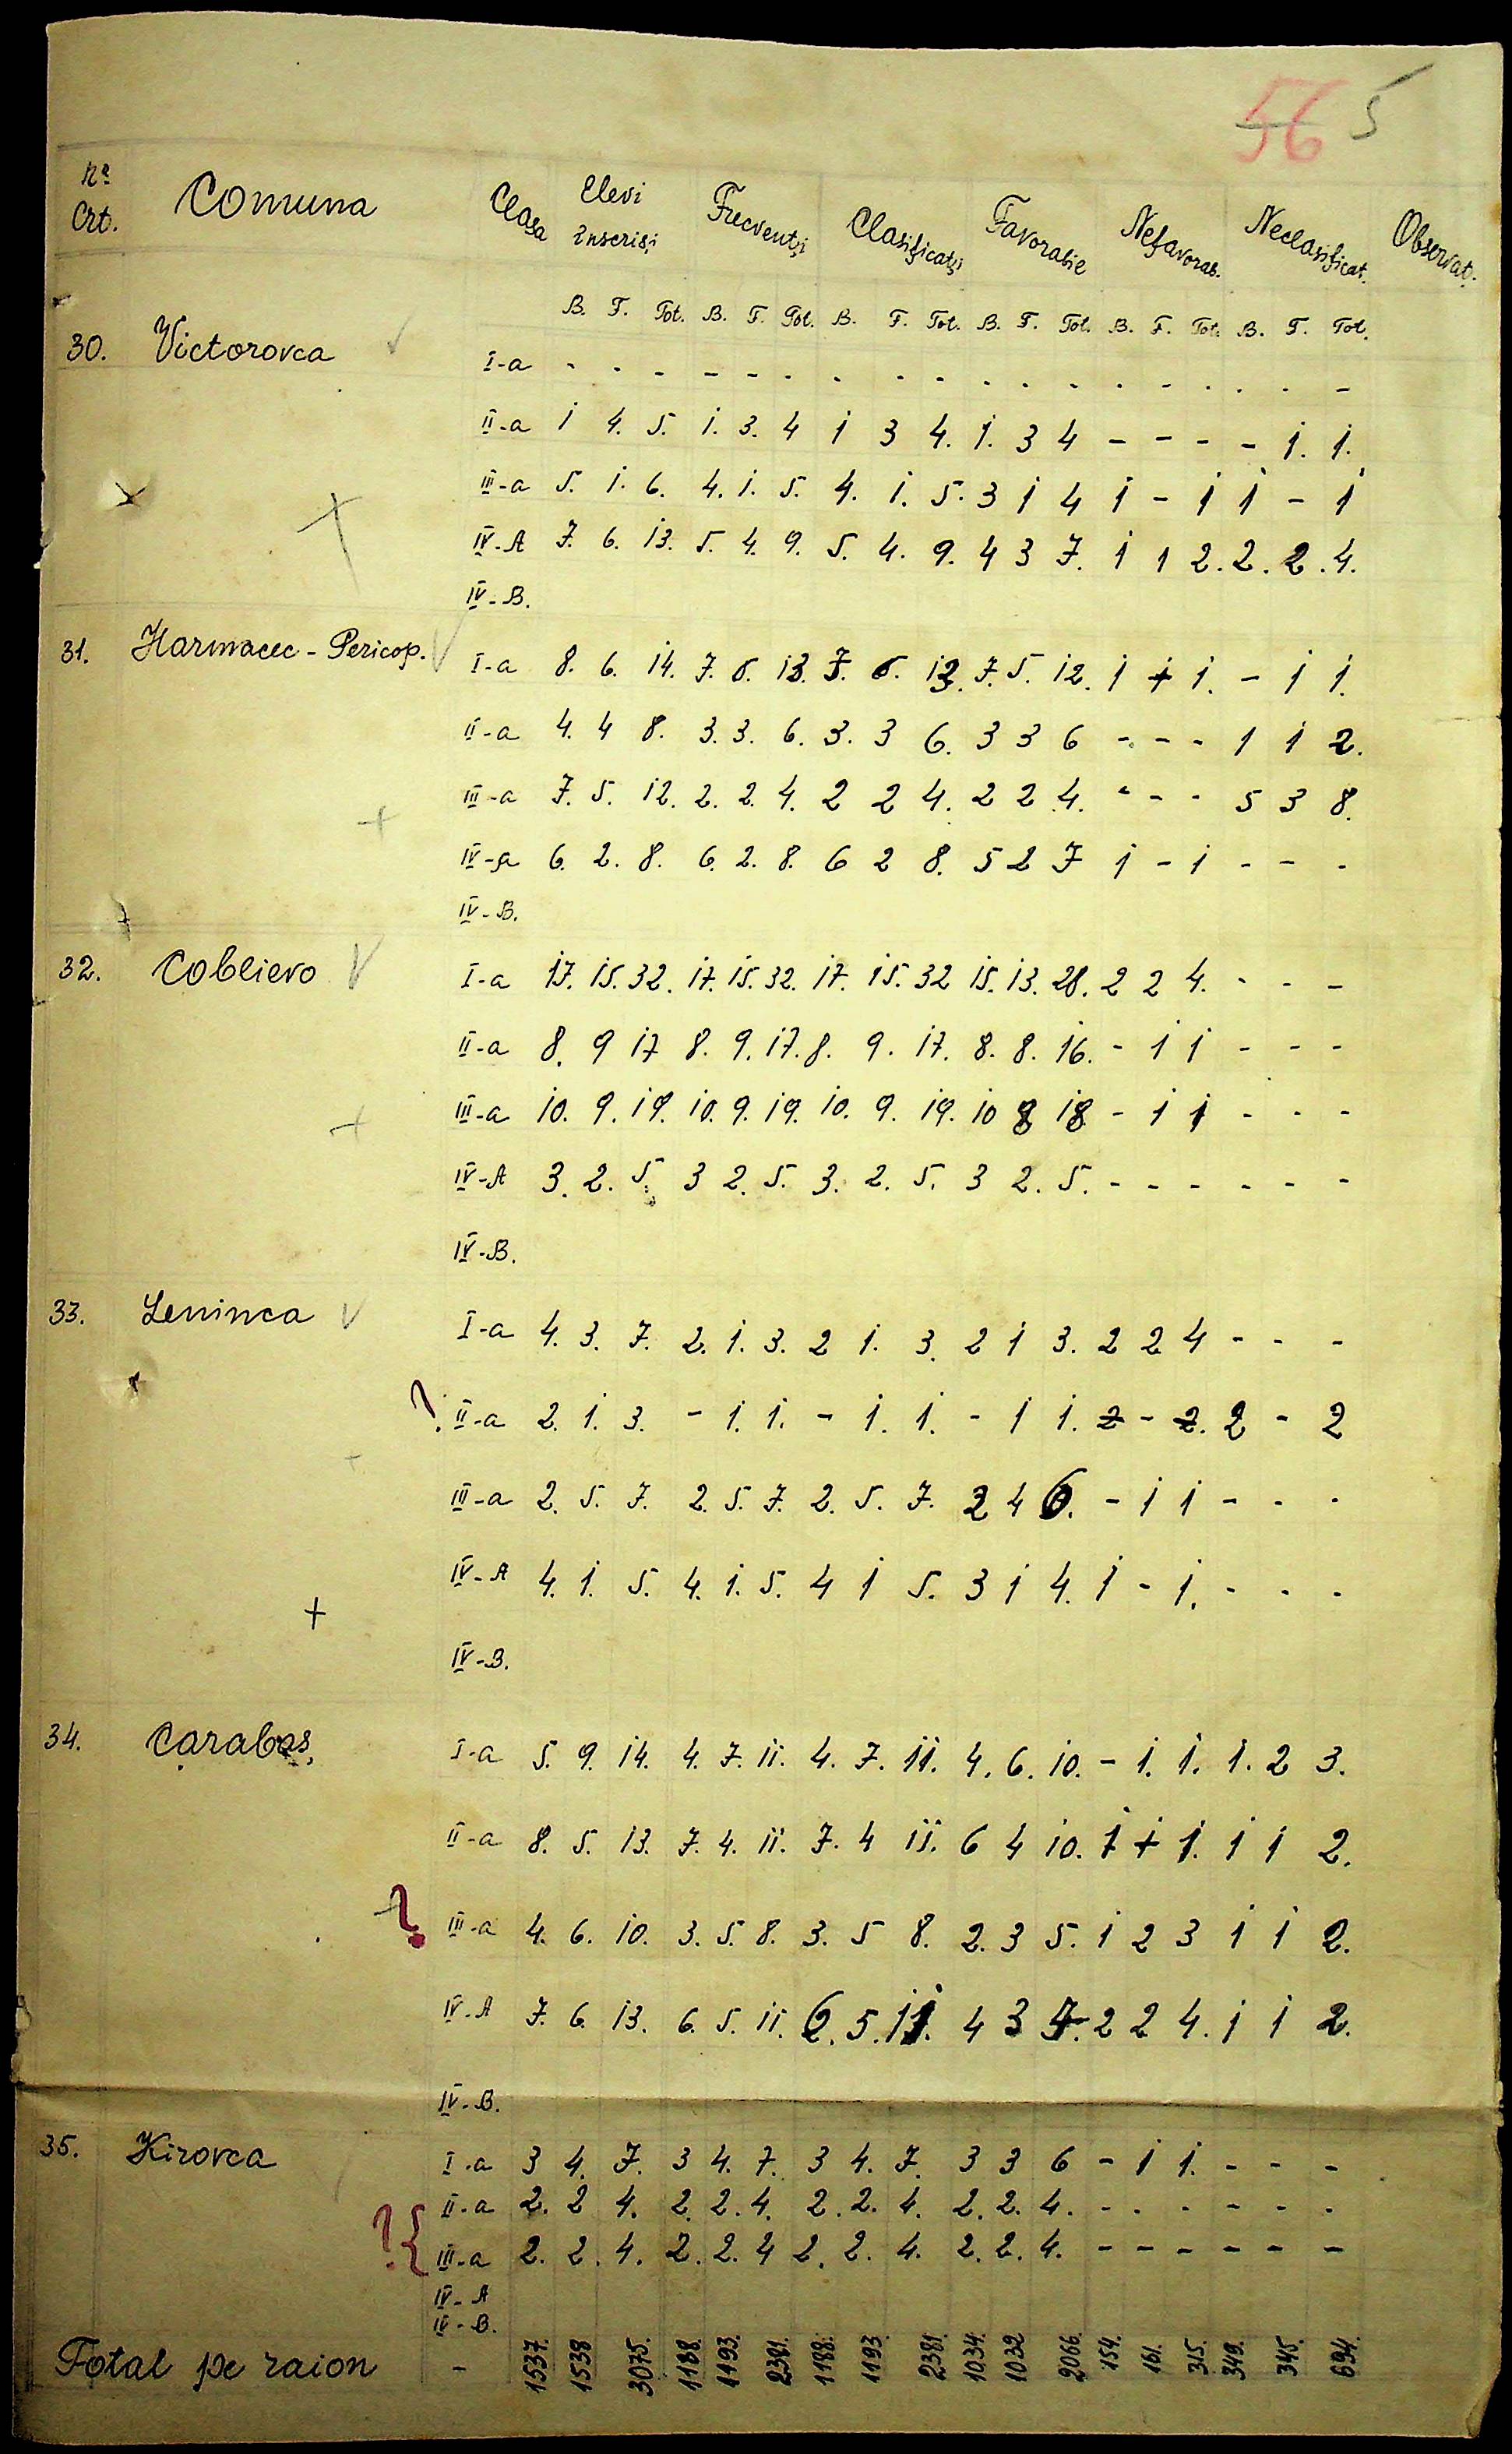 56 5
Nº Crt. Comuna Clasa Elevi Inscrişi Frecvenţi Clasificaţi Favorabie Nefavorab. Neclasificat. Observaţ.
B. F. Tot. B. F. Tot. B. F. Tot. B. F. Tot. B. F. Tot. B. F. Tot.
30. Victorovca I-a - - - - - - - - - - - - - - - - - -
II-a 1 4. 5. 1. 3. 4 1 3 4. 1. 3 4 - - - - 1. 1.
III-a 5. 1. 6. 4. 1. 5. 4. 1. 5. 3 1 4 1 - 1 1 - 1
IV-A 7. 6. 13. 5. 4. 9. 5. 4. 9. 4 3 7. 1 1 2. 2. 2. 4.
IV-B.
31. Harmacec-Pericop. I-a 8. 6. 14. 7. 6. 13. 7. 6. 13. 7. 5. 12. 1 1 1. - 1 1.
II-a 4. 4 8. 3. 3. 6. 3. 3 6. 3 3 6 - - - 1 1 2.
III-a 7. 5. 12. 2. 2. 4. 2 2 4. 2 2 4. - - - 5 3 8.
IV-a 6. 2. 8. 6. 2. 8. 6 2 8. 5 2 7 1 - 1 - - -
IV-B.
32. Coblievo V I-a 17. 15. 32. 17. 15. 32. 17. 15. 32 15. 13. 28. 2 2 4. - - -
II-a 8. 9 17 8. 9. 17. 8. 9. 17. 8. 8. 16. - 1 1 - - -
III-a 10. 9. 19. 10. 9. 19. 10. 9. 19. 10 8 18 - 1 1 - - -
IV-A 3. 2. 5. 3 2. 5. 3. 2. 5. 3 2. 5. - - - - - -
IV-B.
33. Leninca V I-a 4. 3. 7. 2. 1. 3. 2 1. 3. 2 1 3. 2 2 4 - - -
? II-a 2. 1. 3. - 1. 1. - 1. 1. - 1 1. 2 - 2. 2 - 2
III-a 2. 5. 7. 2. 5. 7. 2. 5. 7. 2 4 6. - 1 1 - - -
IV-A 4. 1. 5. 4. 1. 5. 4 1 5. 3 1 4. 1 - 1. - - -
IV-B.
34. Carabaş I-a 5. 9. 14. 4. 7. 11. 4. 7. 11. 4. 6. 10. - 1. 1. 1. 2 3.
II-a 8. 5. 13. 7. 4. 11. 7. 4 11. 6 4 10. 1 1 1. 1 1 2.
? III-a 4. 6. 10. 3. 5. 8. 3. 5 8. 2. 3 5. 1 2 3 1 1 2.
IV-A 7. 6. 13. 6. 5. 11. 6. 5. 11. 4 3 7. 2 2 4. 1 1 2.
IV-B.
35. Kirovca I-a 3 4. 7. 3 4. 7. 3 4. 7. 3 3 6 - 1 1. - - -
?{ II-a 2. 2 4. 2. 2. 4. 2. 2. 4. 2. 2. 4. - - - - - -
III-a 2. 2. 4. 2. 2. 4 2. 2. 4. 2. 2. 4. - - - - - -
IV-A
IV-B.
Total pe raion - 1537. 1538 3075. 1188. 1193. 2381. 1188. 1193 2381. 1034. 1032 2066. 154. 161. 315. 349. 345. 694.